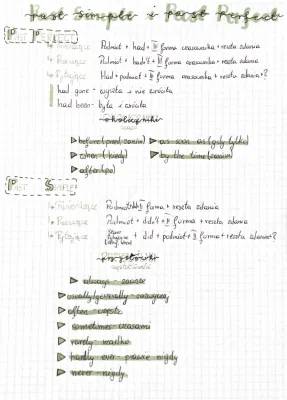 Past Simple i Past Perfect
Past Perfect
Twierdzące Podmiot + had + III forma czasownika + reszta zdania
Przeczące Podmiot + hadn't + III forma czasownika + reszta zdania
Pytające Had + podmiot + III forma czasownika + reszta zdania + ?
had gone - wyszła i nie wróciła
had been - była i wróciła
okoliczniki
before (przed, zanim)
as soon as (gdy tylko)
when (kiedy)
by the time (zanim)
after (po)
Past Simple
Twierdzące Podmiot + II forma + reszta zdania
Przeczące Podmiot + didn't + forma + reszta zdania
Pytające + did + podmiot + forma + reszta zdania + ?
przysłówki
częstotliwości
always - zawsze
usually/generally - zazwyczaj
often - często
sometimes - czasami
rarely - rzadko
hardly ever - prawie nigdy
never - nigdy